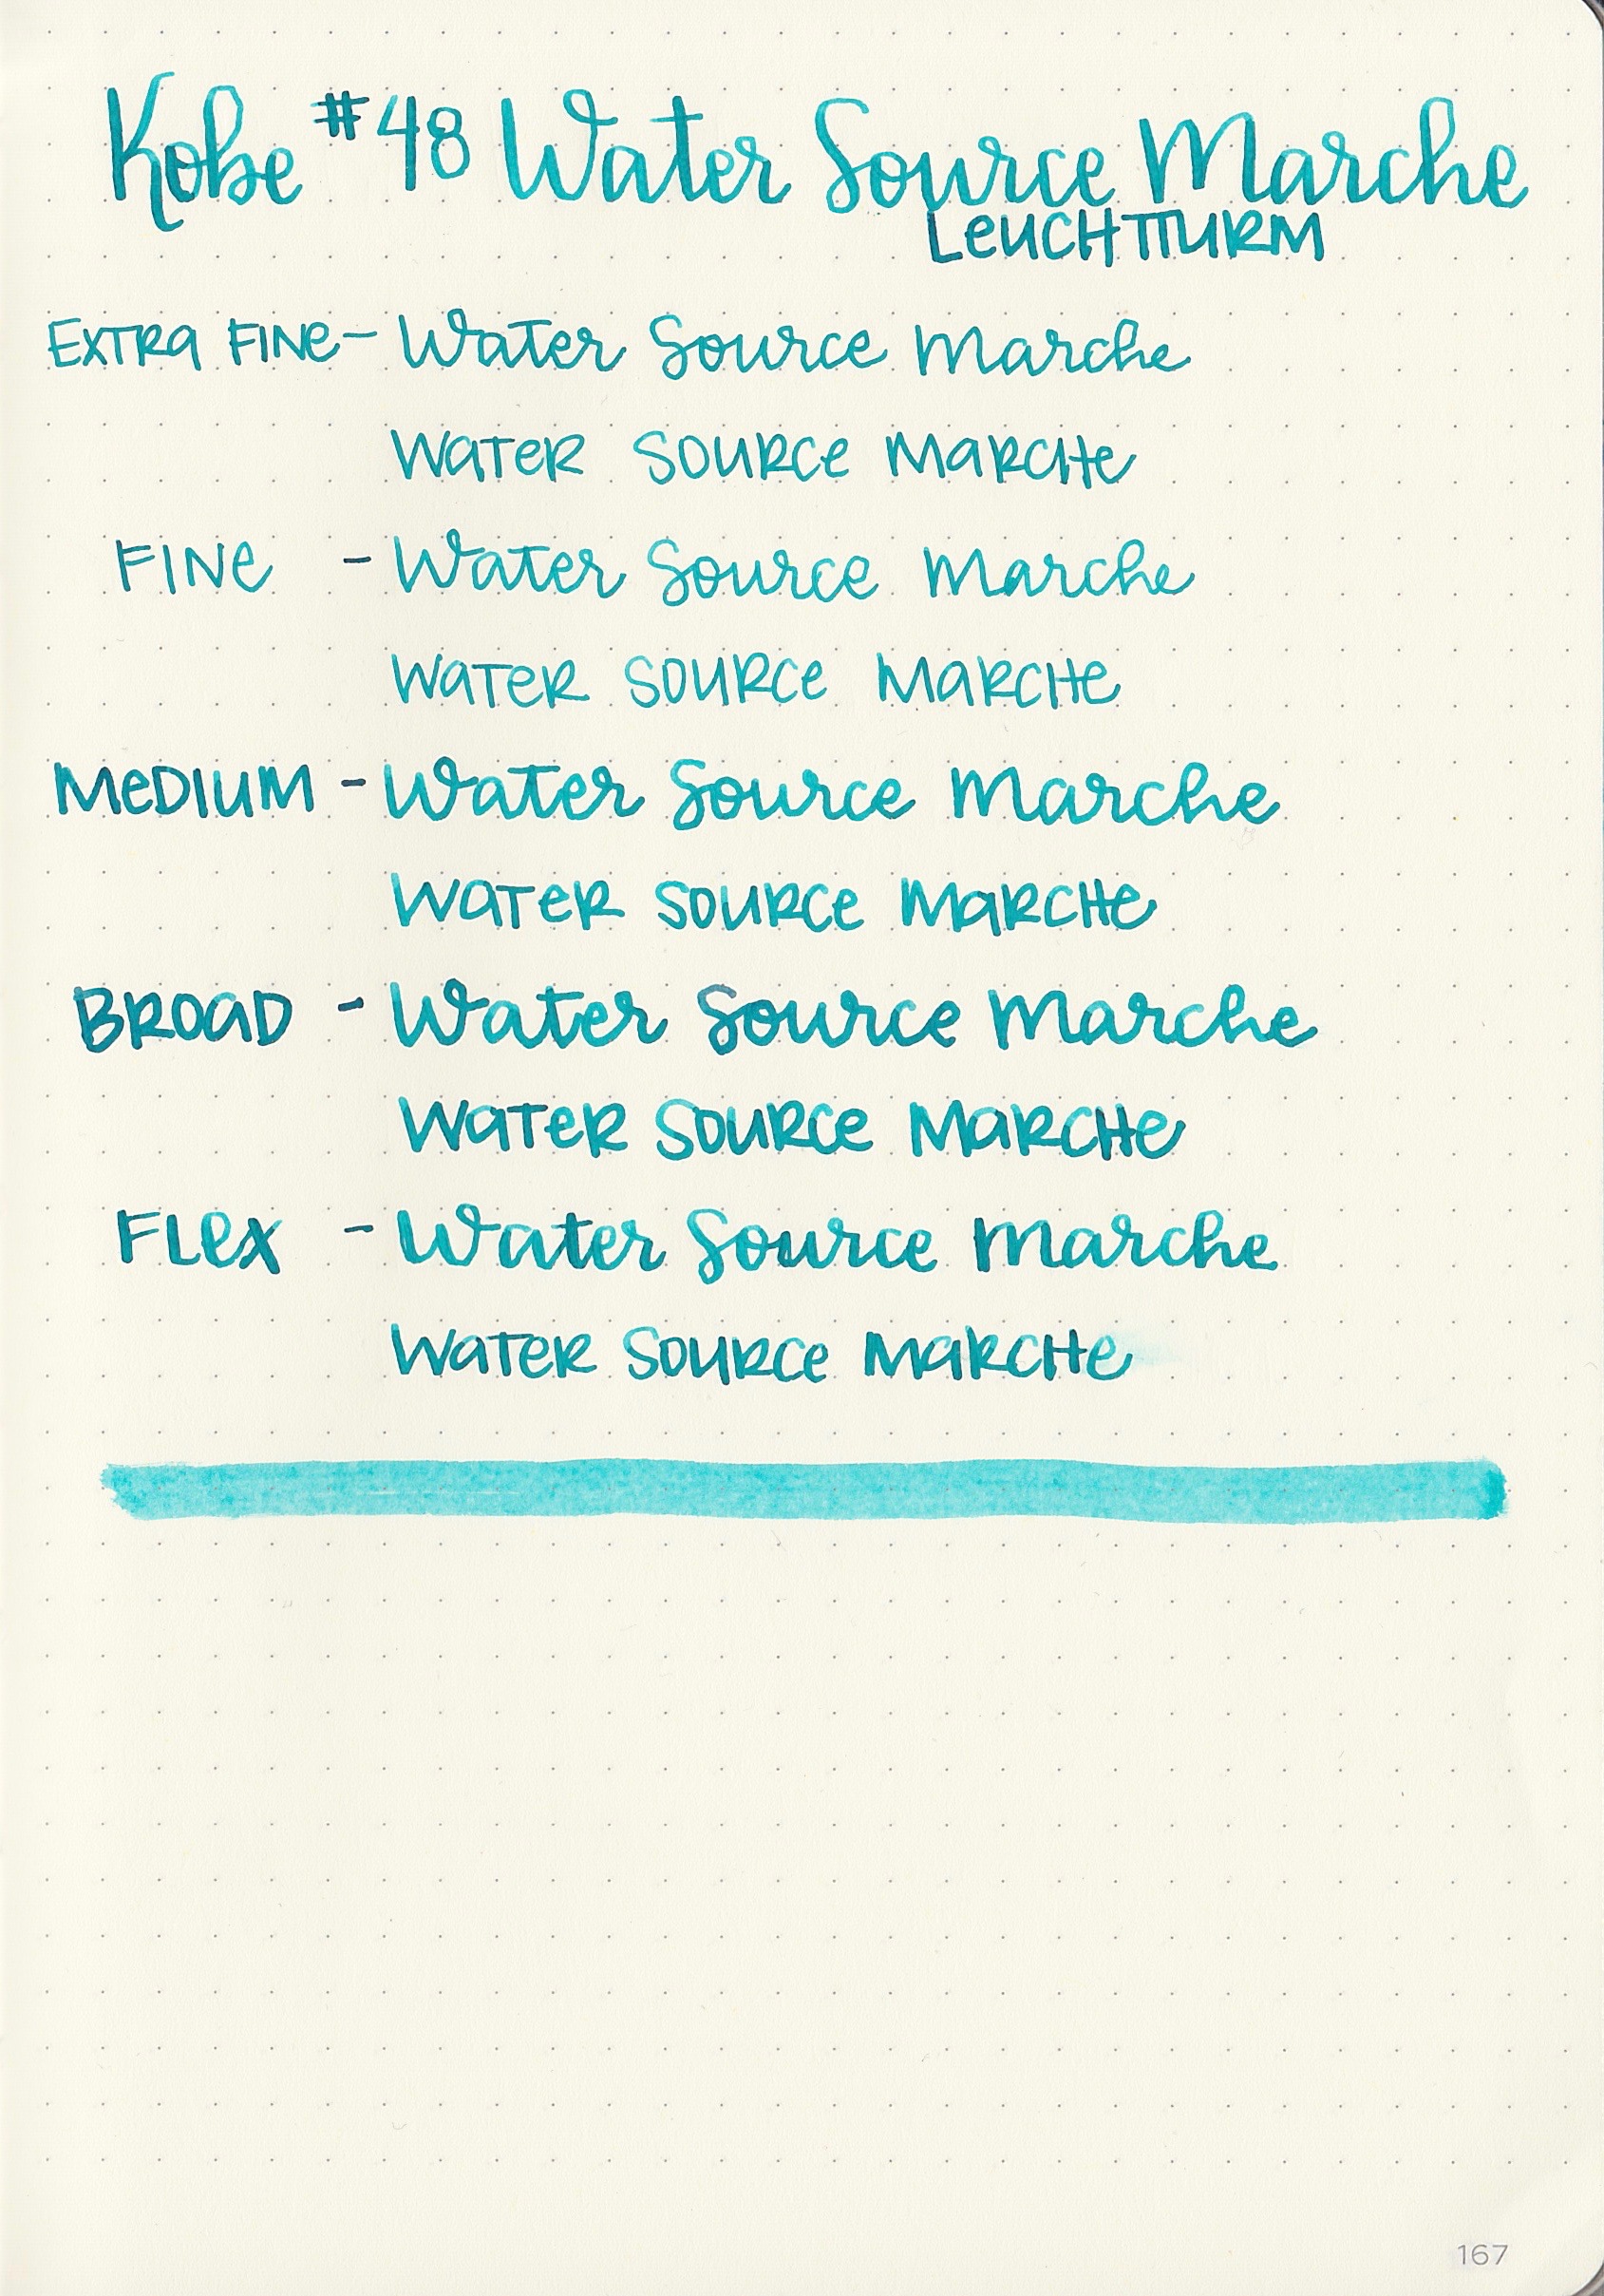 Kobe #48 Water Source Marche
LEUCHTTURM
EXTRA FINE - Water Source Marche
WATER SOURCE MARCHE
FINE - Water Source Marche
WATER SOURCE MARCHE
MEDIUM - Water Source Marche
WATER SOURCE MARCHE
BROAD - Water Source Marche
WATER SOURCE MARCHE
FLEX - Water Source Marche
WATER SOURCE MARCHE
167